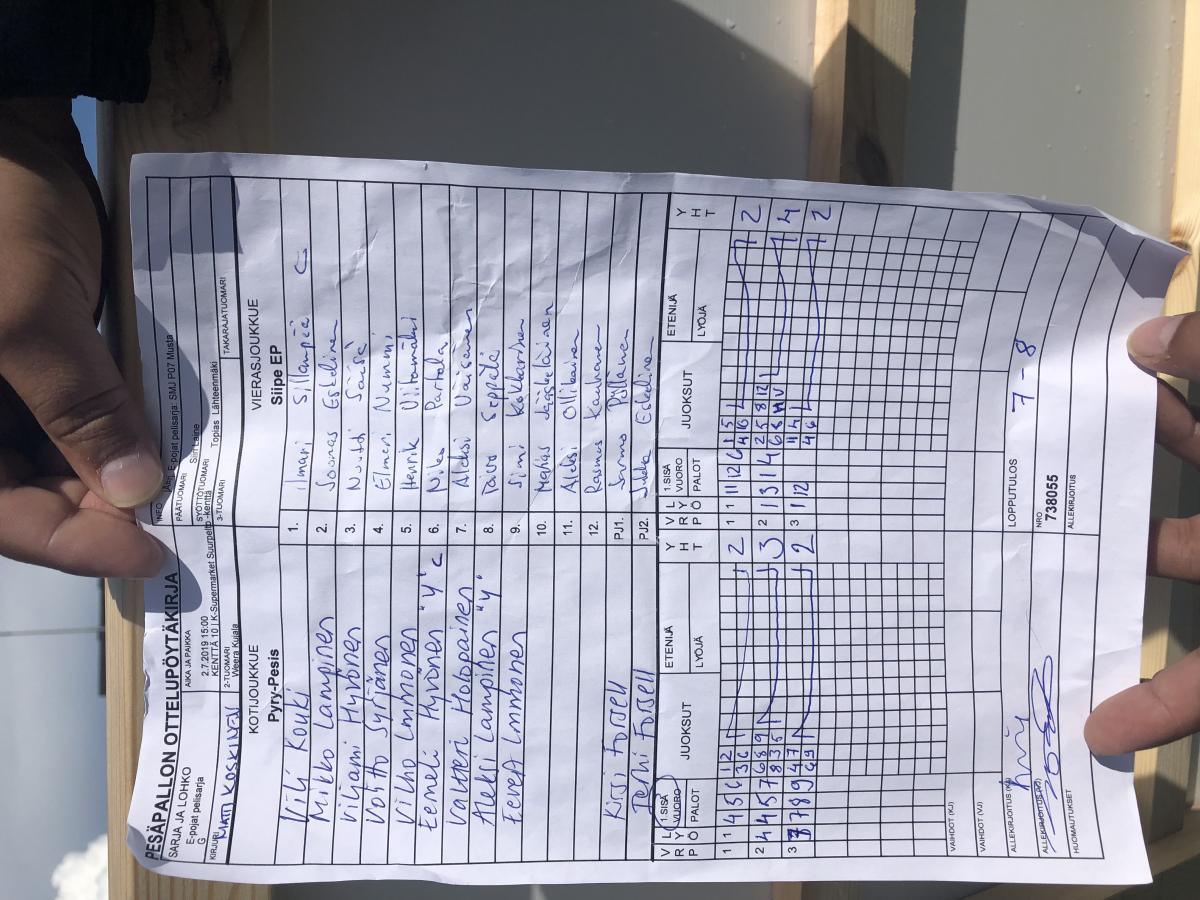 PESÄPALLON OTTELUPÖYTÄKIRJA
SARJA JA LOHKO
E-pojat pelisarja
G
AIKA JA PAIKKA
2.7.2019 15:00
KENTTÄ 10 | K-Supermarket Suurpelto -kenttä
INFO
E-pojat pelisarja: SMJ P07 Musta
PÄÄTUOMARI
Sari Laine
SYÖTTÖTUOMARI
KIRJURI
MATTI KOSKINEN
2-TUOMARI
Weera Kujala
3-TUOMARI
Topias Lähteenmäki
TAKARAJATUOMARI
KOTIJOUKKUE
Pyry-Pesis
VIERASJOUKKUE
Siipe EP
Vili Kouki
1. Ilmari Sillanpää C
Mikko Lampinen
2. Joonas Eskelinen
Viljami Hyvönen
3.
Voitto Syrjänen
4. Elmeri Nummi
Vilho Immonen
5. Henrik Uitamäki
Eemeli Hyvönen "4" C
6. Niko Partala
Valtteri Holopainen
7. Aleksi Väisänen
Aleksi Lampinen "4"
8. Taavi Seppälä
Eevert Immonen
9. Simi Kokkarinen
10. Matias Jääskeläinen
11. Aleksi Ollikainen
12. Rasmus Kauhanen
Kirsi Forsell
PJ1. Jarmo Pyllänen
Terhi Forsell
PJ2. Jukka Eskelinen
V R P
L Y Ö
1.SISÄ
VUORO
PALOT
JUOKSUT
ETENIJÄ
LYÖJÄ
Y H T
V R P
L Y Ö
1.SISÄ
VUORO
PALOT
JUOKSUT
ETENIJÄ
LYÖJÄ
Y H T
1 1 4 5 6 1 2 2
3 6
1 1 11 12 6 1 5 2
4 10
2 4 4 5 7 6 8 9 3
8 3 5
2 1 13 1 4 2 5 8 12 4
3 7 8 9 4 7 2
6 9
3 1 12 11 4 2
4 6
VAIHDOT (KJ)
VAIHDOT (VJ)
ALLEKIRJOITUS (KJ)
LOPPUTULOS
7 - 8
ALLEKIRJOITUS (VJ)
NRO
738055
HUOMAUTUKSET
ALLEKIRJOITUS